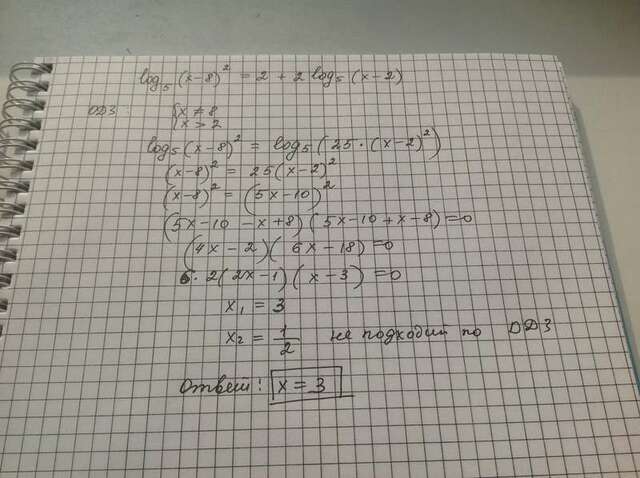 log₅(x-8)² = 2 + 2 log₅(x-2)
ОДЗ: { x ≠ 8
x > 2
log₅(x-8)² = log₅(25·(x-2)²)
(x-8)² = 25(x-2)²
(x-8)² = (5x-10)²
(5x-10-x+8)(5x-10+x-8)=0
(4x-2)(6x-18)=0
6·2(2x-1)(x-3)=0
x₁ = 3
x₂ = 1/2 не подходит по ОДЗ
Ответ: x = 3